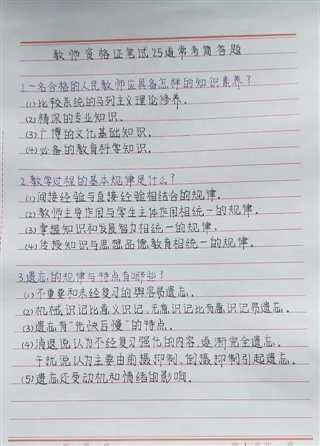 教师资格证笔试25道常考简答题
1.一名合格的人民教师应具备怎样的知识素养?
(1)比较系统的马列主义理论修养。
(2)精深的专业知识。
(3)广博的文化基础知识。
(4)必备的教育科学知识。
2.教学过程的基本规律是什么?
(1)间接经验与直接经验相结合的规律。
(2)教师主导作用与学生主体作用相统一的规律。
(3)掌握知识和发展智力相统一的规律。
(4)传授知识与思想品德教育相统一的规律。
3.遗忘的规律与特点有哪些?
(1)不重要和未经复习的内容易遗忘。
(2)机械识记比意义识记、无意识记比有意识记易遗忘。
(3)遗忘有“先快后慢”的特点。
(4)消退说认为不经复习强化的内容,逐渐完全遗忘。
干扰说认为主要由前摄抑制、倒摄抑制引起遗忘。
(5)遗忘还受动机和情绪的影响。